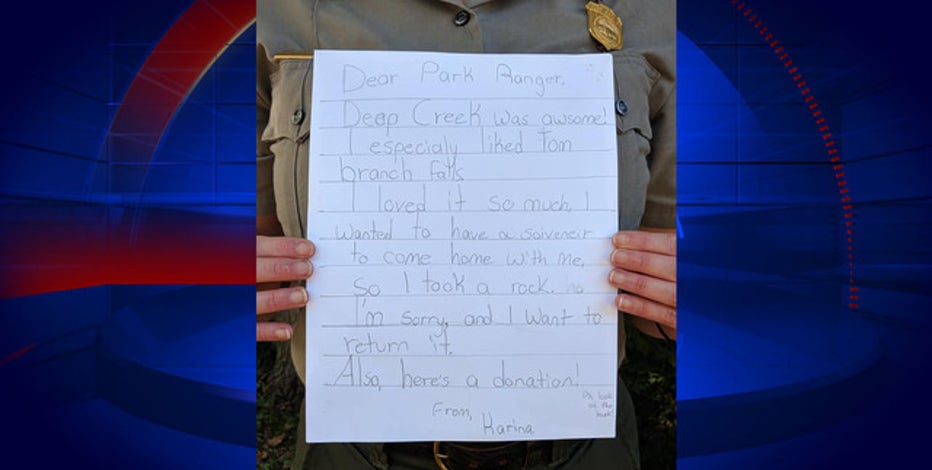 Dear Park Ranger,
Deep Creek was awsome!
I especialy liked Tom
branch falls
I loved it so much, I
wanted to have a soiveneir
to come home with me,
so I took a rock.
I'm sorry, and I want to
return it.
Also, here's a donation!
From,
Karina
Ps, look
on the
back!